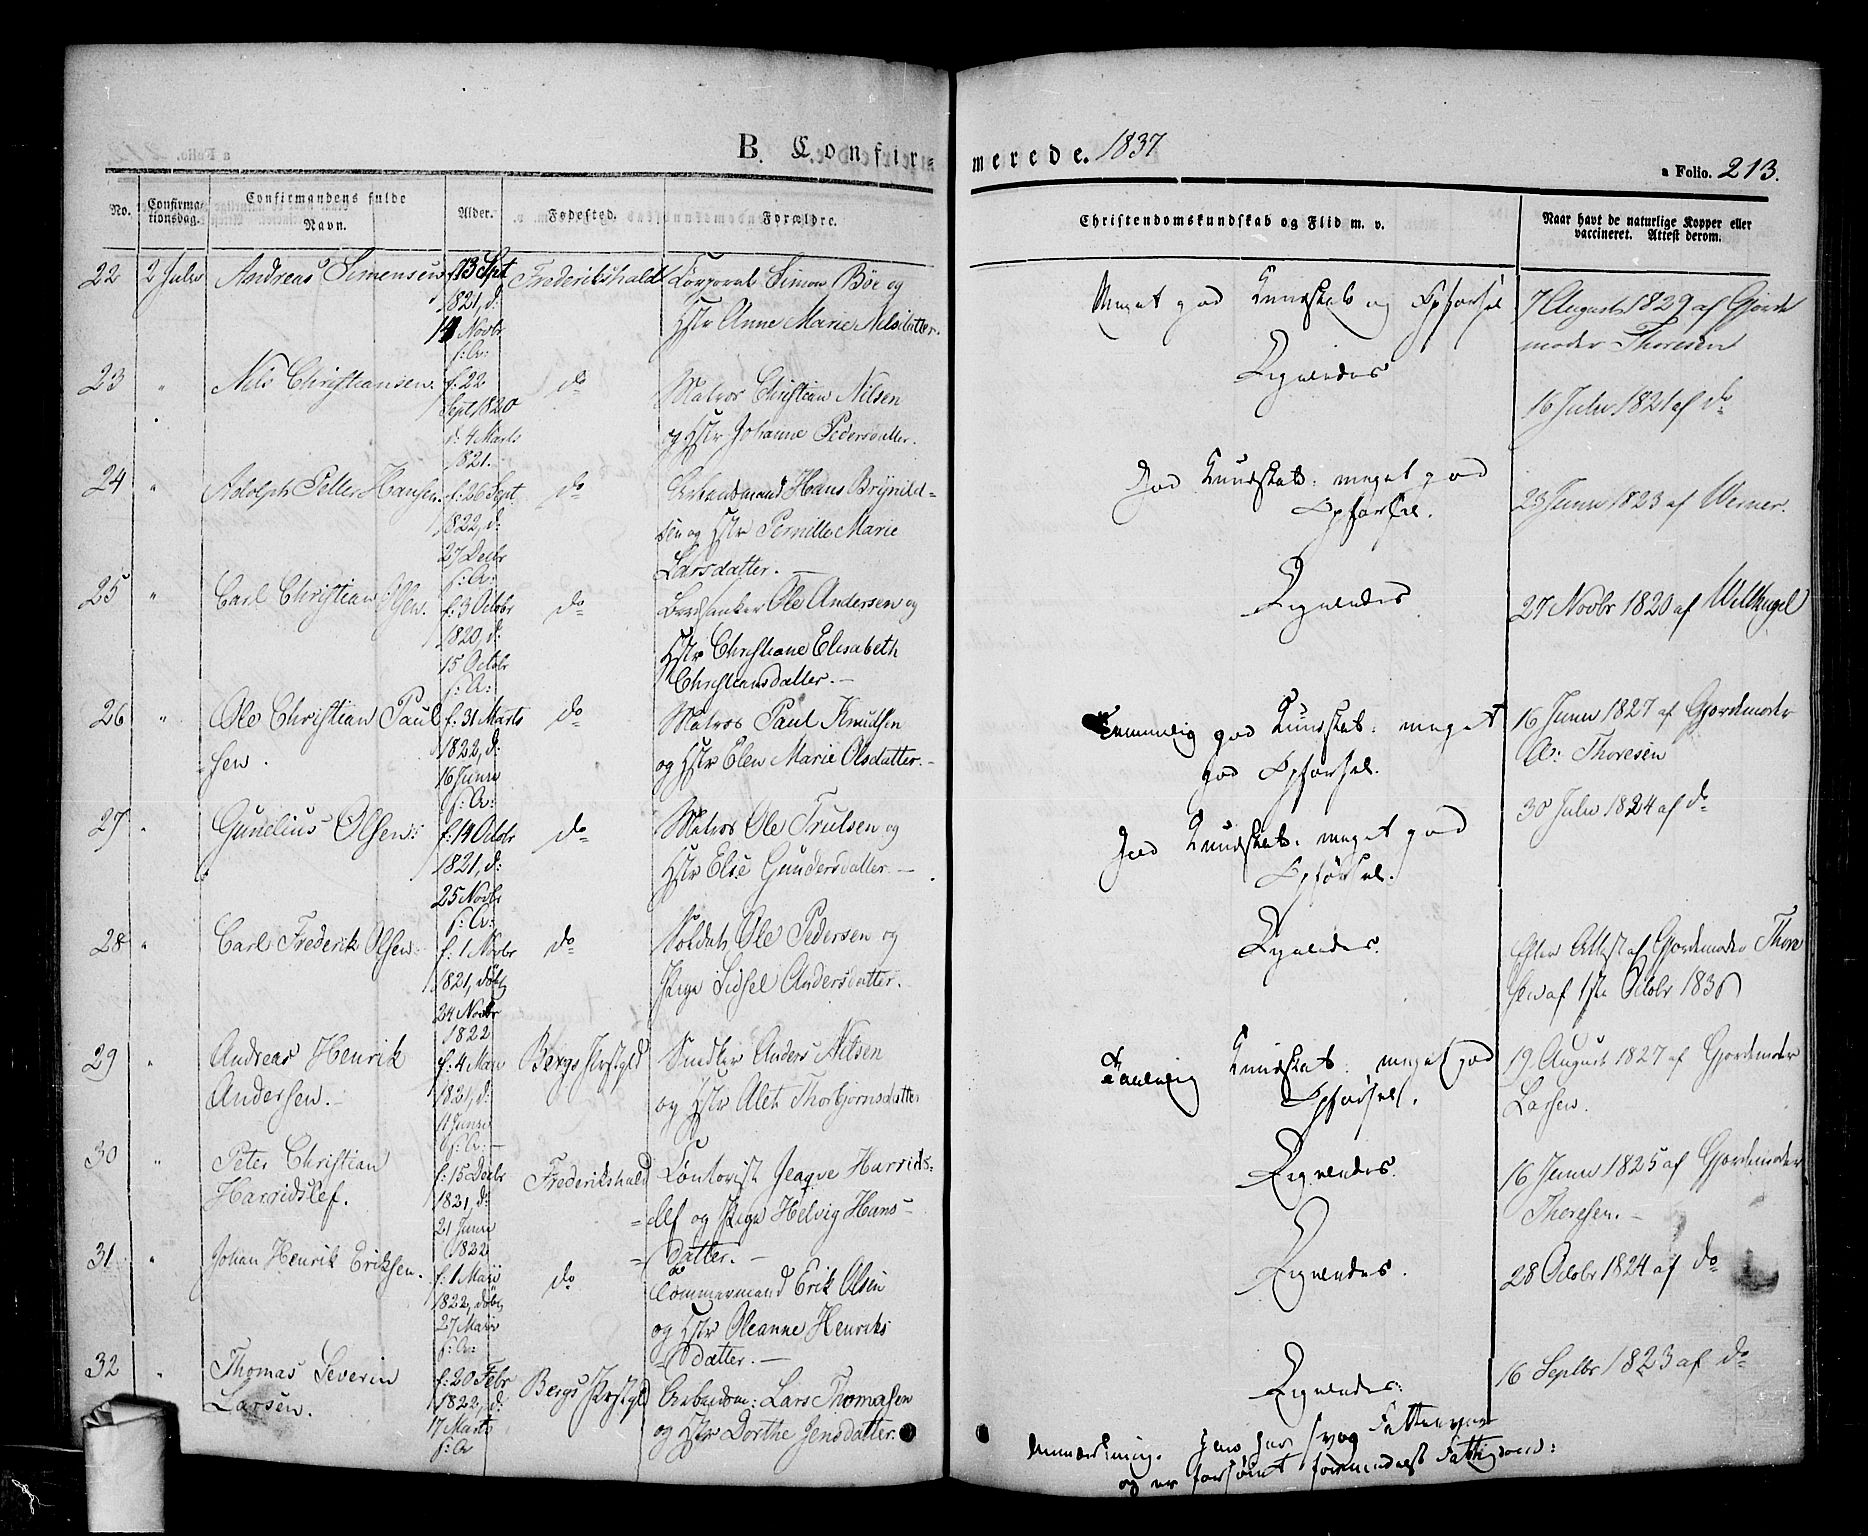 B. Confir-
merede. 1837
a Folio. 213.
No.
Confirma-
tionsdag.
Confirmandens fulde
Navn.
Alder.
Fødested.
Forældre.
Christendomskundskab og Flid m. v.
Naar havt de naturlige Kopper eller
vaccineret. Attest derom.
22 2 Julii Andreas Simensen f. 13 Spt Frederikshald Corporal Simon Böe og
1821, d:
Hstr Anne Marie Nilsdatter.
Novbr
s: A:
Meget god Kundskab og Opførsel
7 August 1829 af Gjorde
moder Thoresen
23 " Nils Christiansen. f. 22 do Matros Christian Nilsen
Sept 1820
og Hstr Johanne Pedersdatter.
d: 4 Marts
1821.
Ligeledes
16 Julii 1821 af do
24 " Adolph Petter Hansen. f. 26 Sept do Arbeidsmand Hans Brynild-
1822, d:
sen og Hstr Pernille Marie
27 Decbr
Larsdatter. —
s: A:
God Kundskab. meget god
Opførsel.
23 Junii 1823 af Werner.
25 " Carl Christian Olsen. f. 3 Octobr do Ole Andersen og
1820, d:
Hstr Christiane Elisabeth
15 Octobr
Christiansdatter. —
s: A:
Ligeledes
27 Novbr 1820 af
26 " Ole Christian Paul f: 31 Marts do Matros Paul Knudsen
sen. 1822, d:
og Hstr Elen Marie Olsdatter. —
16 Junii
s: A:
Temmelig god Kundskab. meget
god Opførsel.
16 Junii 1827 af Gjordemoder
A: Thoresen
27 " Gunelius Olsen: f: 14 Octobr do Matros Ole Trulsen og
1821, d:
Hstr Else Gundersdatter. —
25 Novbr
s: A:
God Kundskab. meget god
Opførsel.
30 Julii 1824 af do
28 " Carl Frederik Olsen. f: 1 Novbr do Soldat Ole Pedersen og
1821, döbt
Pige Sidsel Andersdatter.
24 Novbr
1822
Ligeledes.
Efter Attest af Gjordemoder Thore
sen af 1ste Octobr 1836
29 " Andreas Henrik f. 4 Maii Bergs Præstgld Snedker Anders Nilsen
Andersen. — 1821, d:
og Hstr Alet Thorbjörnsdatter
11 Junii
s: A: —
Kundskab. meget god
Opførsel.
19 August 1827 af Gjordemoder
Larsen.
30 " Peter Christian f: 15 Decbr Frederikshald Contorist Jeaqve Harrids-
Harridslef. 1821, d:
lef og Pige Helvig Hans-
21 Junii
datter. —
1822
Ligeledes.
16 Junii 1825 af Gjordemoder
Thoresen. —
31 " Johan Henrik Eriksen. f: 1 Maii do Tömmermand Erik Olsen
1822, döbt
og Hstr Oleanne Henriks
27 Maii
datter. —
s: A:
Ligeledes.
28 Octobr 1824 af do
32 " Thomas Severin f: 20 Febr Bergs Præstgld Arbeidsm: Lars Thomasen
Larsen. 1822, d:
og Hstr Dorthe Jensdatter.
17 Marts
s: A
Ligeledes:
16 Septbr 1823 af do
Anmærkning.
og er forsömt formedelst Fattigdom: